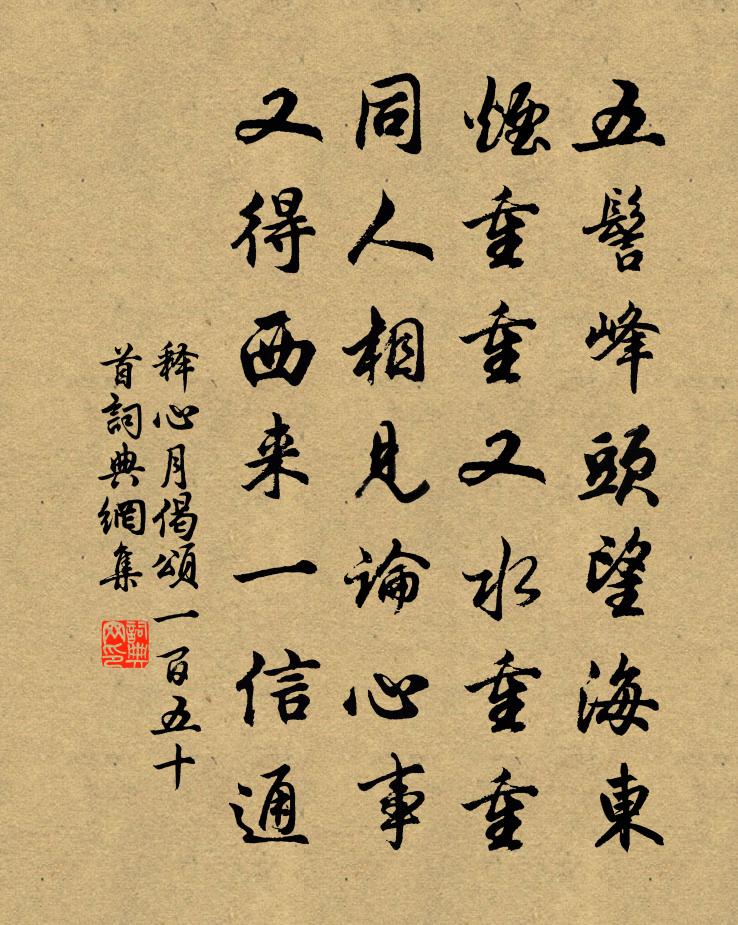 五髻峰頭望海東
煙重重又水重重
同人相見論心事
又得西来一信通
释心月偈頌一百五十
首詞典網集
詞典
网印